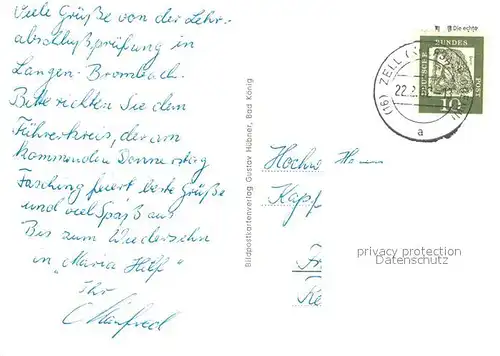 Viele Grüße von der Lehr-
abschlußprüfung in
Langen-Brombach.
Bitte richten Sie dem
Führerkreis, der am
kommenden Donnerstag
Fasching feiert beste Grüße
und viel Spaß aus
Bis zum Wiedersehn
in "Maria Hilf"
Ihr
Manfred
Bildpostkartenverlag Gustav Hübner, Bad König
Die echte
DEUTSCHE
BUNDES
POST
10
(16) ZELL
22.2.
a
Hochw Herrn
Kapf
Fr
Ke
privacy protection
Datenschutz